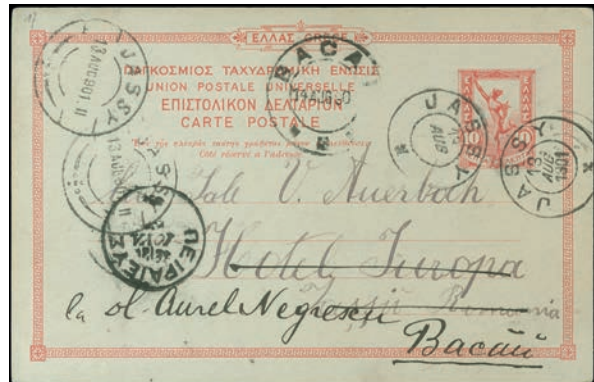 ΕΛΛΑΣ GRÈCE
ΠΑΓΚΟΣΜΙΟΣ ΤΑΧΥΔΡΟΜΙΚΗ ΕΝΩΣΙΣ
UNION POSTALE UNIVERSELLE
ΕΠΙΣΤΟΛΙΚΟΝ ΔΕΛΤΑΡΙΟΝ
CARTE POSTALE
Côté réservé à l'adresse
JASSY
13 AUG 901.11
BACAU
14 AUG
JASSY
AUG
JASSY
13
AUG
1901
JASSY
13 AUG 901
ΠΕΙΡΑΙΕΥΣ
V. Auerbach
Hotel Europa
Romania
la dl. Aurel Negrescu
Bacău